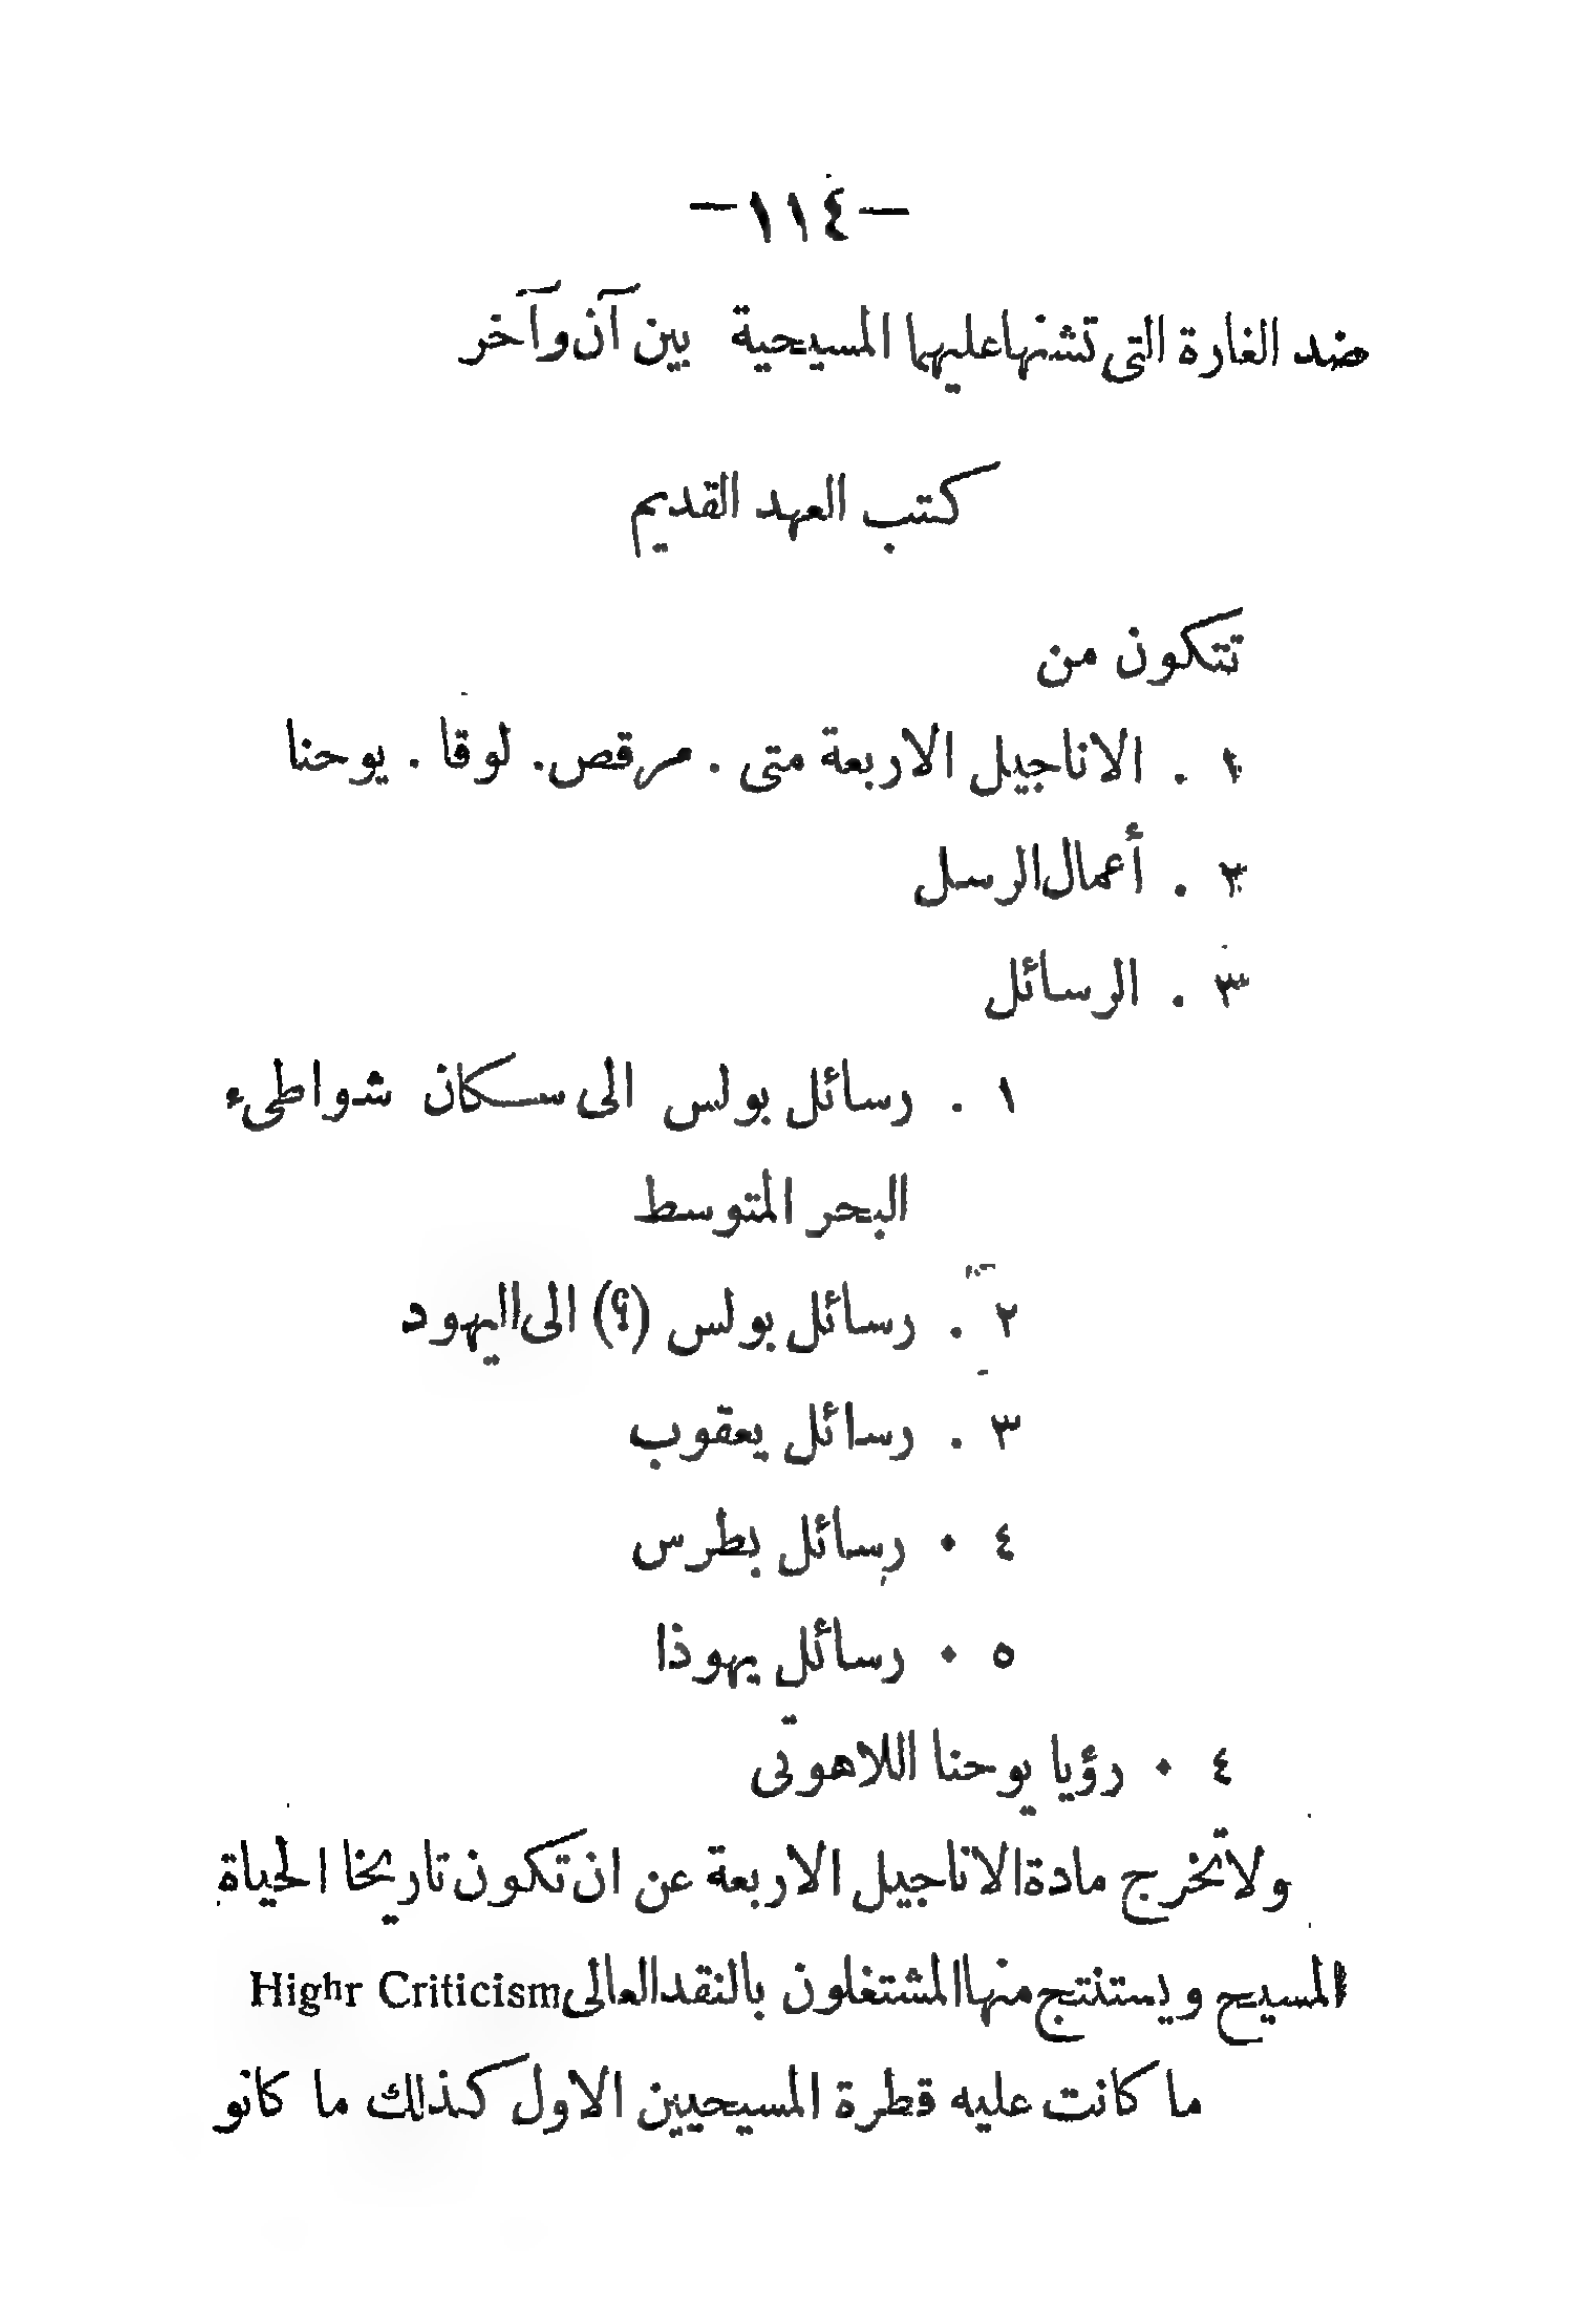 —١١٤—
ضد الغارة التى تشنها عليها المسيحية بين آن وآخر
كتب العهد القديم
تتكون من
١ . الاناجيل الاربعة متى . مرقص . لوقا . يوحنا
٢ . أعمال الرسل
٣ . الرسائل
١ . رسائل بولس الى سكان شواطىء
البحر المتوسط
٢ . رسائل بولس (؟) الى اليهود
٣ . رسائل يعقوب
٤ . رسائل بطرس
٥ . رسائل يهوذا
٤ . رؤيا يوحنا اللاهوتى
ولا تخرج مادة الاناجيل الاربعة عن ان تكون تاريخا الحياة
المسيح ويستنتج منها المشتغلون بالنقد العالى Highr Criticism
ما كانت عليه قطرة المسيحيين الاول كذلك ما كانو